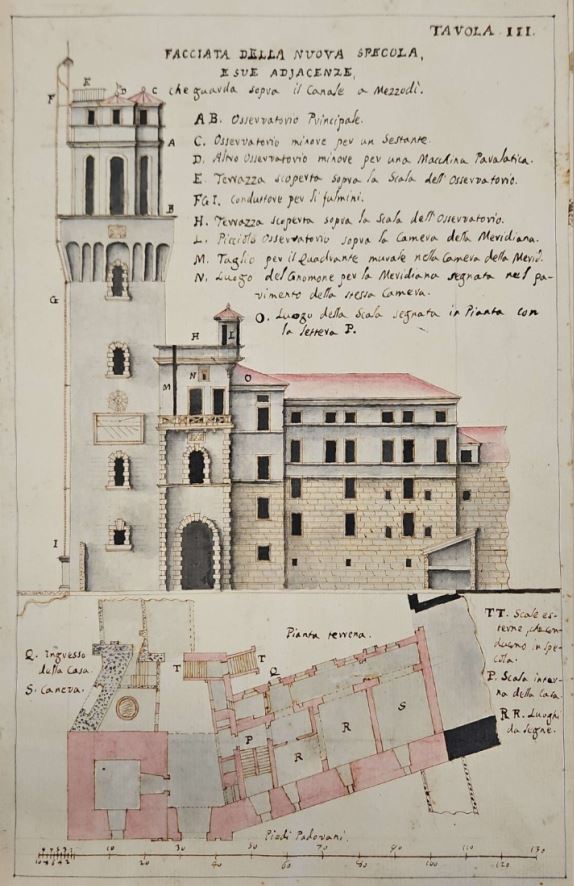 TAVOLA III.
FACCIATA DELLA NUOVA SPECOLA,
E SUE ADJACENZE,
che guarda sopra il Canale a Mezzodì.
A B. Osservatorio Principale.
C. Osservatorio minore per un Sestante.
D. Altro Osservatorio minore per una Macchina Paralatica.
E. Terrazza scoperta sopra la Scala dell'Osservatorio.
F G I. Conduttore per li fulmini.
H. Terrazza scoperta sopra la scala dell'Osservatorio.
L. Picciolo Osservatorio sopra la Camera della Meridiana.
M. Taglio per il Quadrante murale nella Camera della Merid.
N. Luogo del Gnomone per la Meridiana segnata nel pa-
vimento della stessa Camera.
O. Luogo della Scala segnata in Pianta con
la lettera P.
F
E
D
C
A
B
G
H
L
M
N
O
I
Pianta terrena.
Q. Ingresso
della Casa.
S. Caneva.
TT. Scale es-
terne, che con-
ducono in spe-
cola.
P. Scala inter-
na della Casa.
R R. Luoghi
da legne.
T
T
Q
P
R
R
S
Piedi Padovani.
10
20
30
40
50
60
70
80
90
100
110
120
130